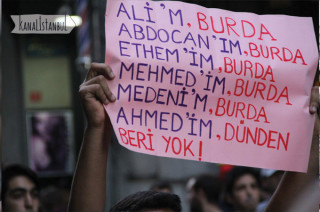 KANALISTANBUL
ALİ'M, BURDA
ABDOCAN'IM, BURDA
ETHEM'İM, BURDA
MEHMED'İM, BURDA
MEDENİ'M, BURDA
AHMED'İM, DÜNDEN
BERİ YOK!